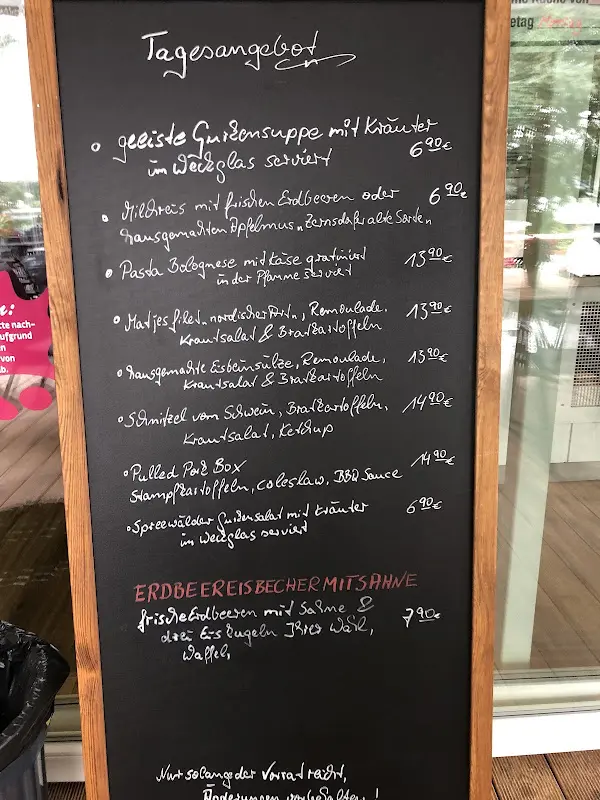 etag
Tagesangebot
geeiste Gurkensuppe mit Kräuter
im Weckglas serviert 6,90€
Milchreis mit frischen Erdbeeren oder 6,90€
hausgemachten Apfelmus "Zernsdorfer alte Sorte"
Pasta Bolognese mit Käse gratiniert 13,90€
in der Pfanne serviert
Matjesfilet "nordischer Art", Remoulade, 13,90€
Krautsalat & Bratkartoffeln
hausgemachte Eisbeinsülze, Remoulade, 13,90€
Krautsalat & Bratkartoffeln
Schnitzel vom Schwein, Bratkartoffeln, 14,90€
Krautsalat, Ketchup
Pulled Pork Box 14,90€
Stampfkartoffeln, Coleslaw, BBQ Sauce
Spreewälder Gurkensalat mit Kräuter 6,90€
im Weckglas serviert
ERDBEEREISBECHER MIT SAHNE
frische Erdbeeren mit Sahne & 7,90€
drei Eiskugeln Ihrer Wahl,
Waffel,
Nur solange der Vorrat reicht,
Änderungen vorbehalten!
e:
tte nach-
ufgrund
en
von
b.